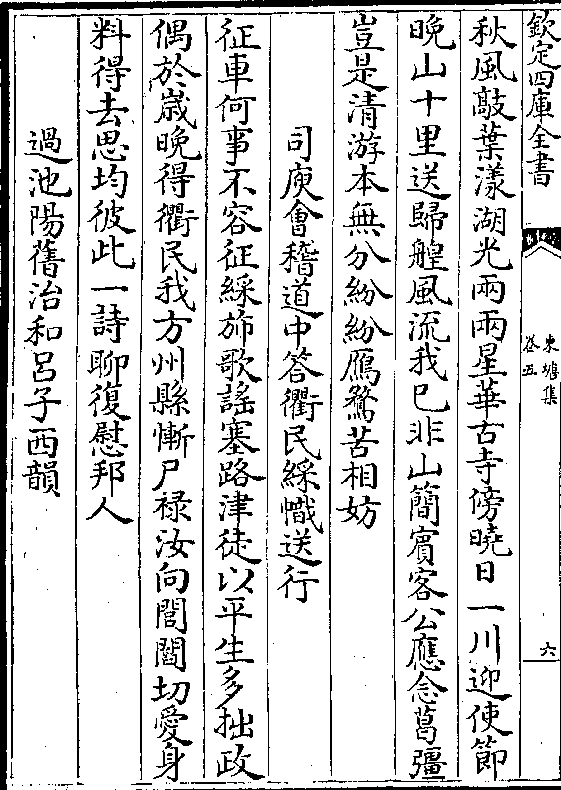 欽定四庫全書
東塘集
卷五
六
秋風敲葉漾湖光兩兩星華古寺傍曉日一川迎使節
晩山十里送歸艎風流我已非山簡賓客公應念葛彊
豈是清游本無分紛紛鴈鶩苦相妨
司庾會稽道中答衢民綵幟送行
征車何事不容征綵斾歌謠塞路津徒以平生多拙政
偶於歳晩得衢民我方州縣慚尸禄汝向閭閻切愛身
料得去思均彼此一詩聊復慰邦人
過池陽舊治和吕子西韻